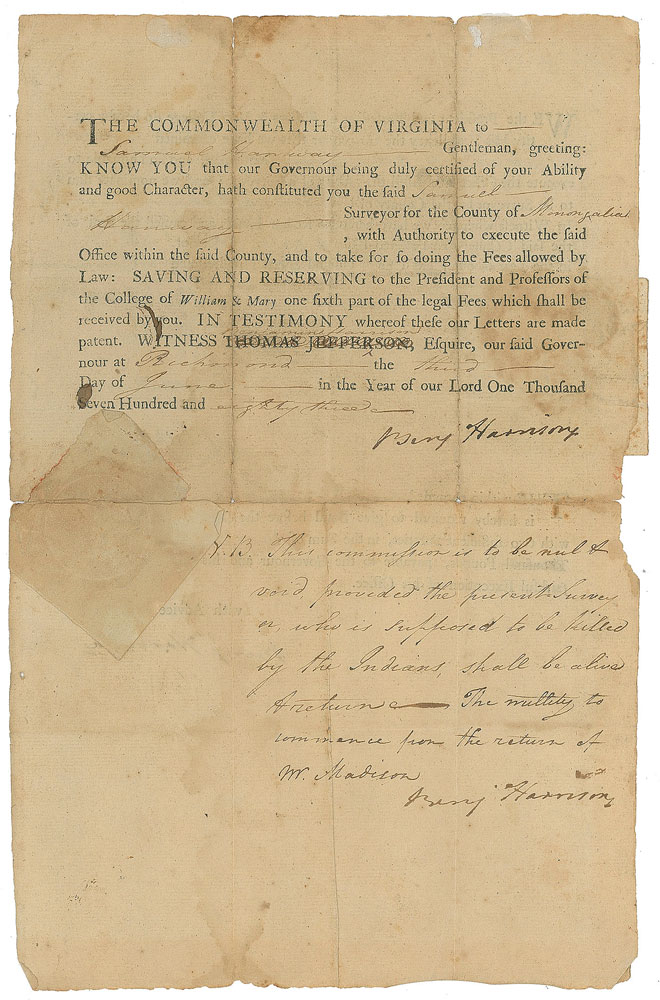 THE COMMONWEALTH OF VIRGINIA to
Samuel Hanway Gentleman, greeting:
KNOW YOU that our Governour being duly certified of your Ability
and good Character, hath conſtituted you the ſaid Samuel
Hanway Surveyor for the County of Monongalia
, with Authority to execute the ſaid
Office within the ſaid County, and to take for ſo doing the Fees allowed by
Law: SAVING AND RESERVING to the Preſident and Profeſſors of
the College of William & Mary one ſixth part of the legal Fees which ſhall be
received by you. IN TESTIMONY whereof theſe our Letters are made
Benjamin Harrison
patent. WITNESS THOMAS JEFFERSON, Eſquire, our ſaid Gover-
nour at Richmond the third
Day of June in the Year of our Lord One Thouſand
Seven Hundred and eighty three
Benj Harrison
N.B. This commission is to be nul &
void, provided the present Survey
or, who is supposed to be killed
by the Indians, shall be alive
& return The nullity to
commence from the return of
Mr. Madison
Benj Harrison